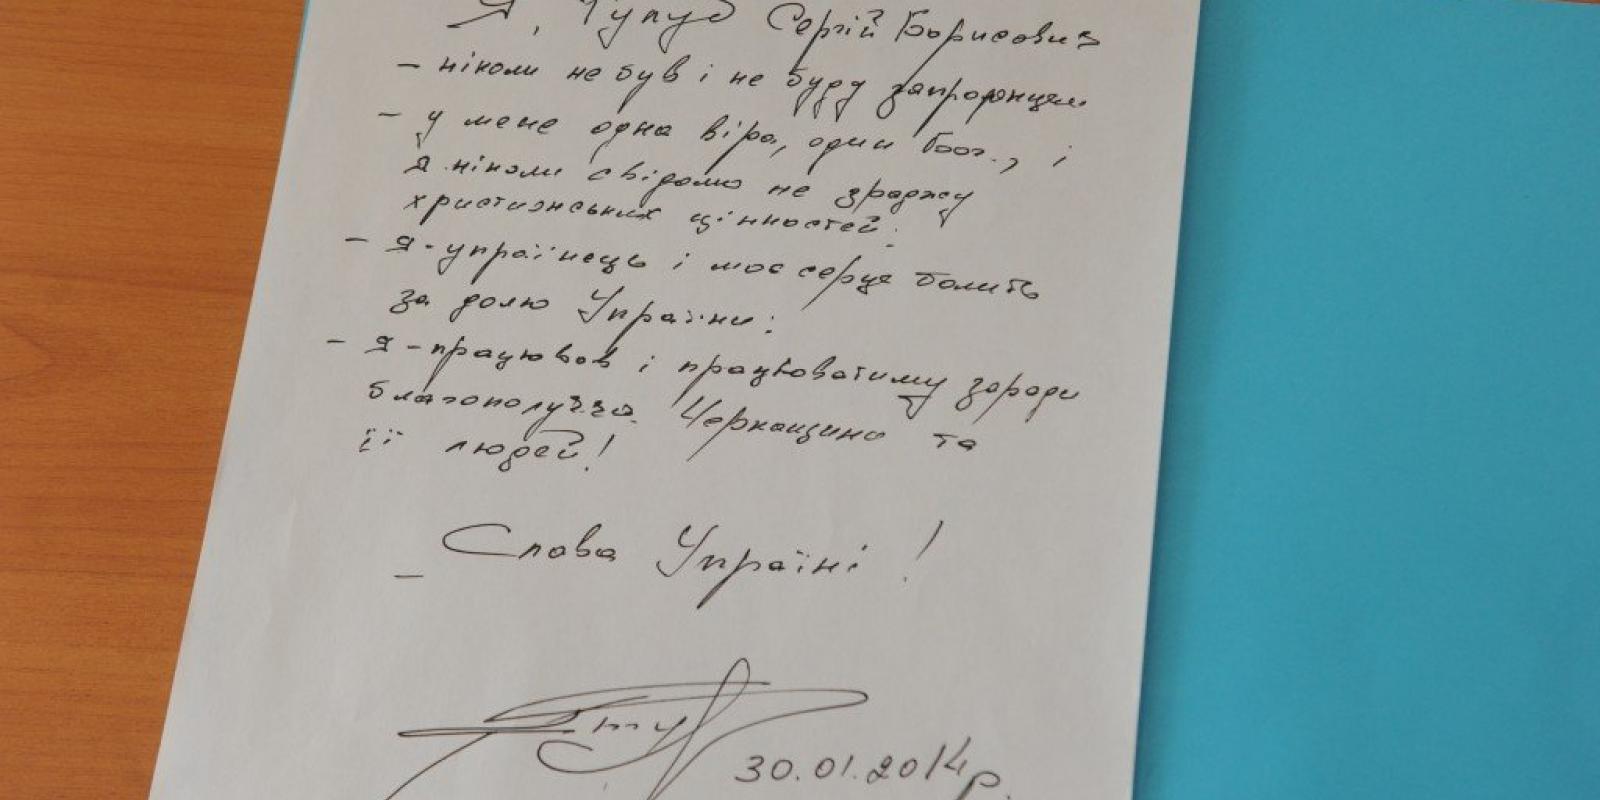 Я, Тулуб Сергій Борисович
– ніколи не був і не буду запроданцем
– у мене одна віра, один бог, і
я ніколи свідомо не зраджу
християнських цінностей;
– я - українець і моє серце болить
за долю України;
– я - працював і працюватиму заради
благополуччя Черкащини та
її людей!
– Слава Україні!
30.01.2014р.